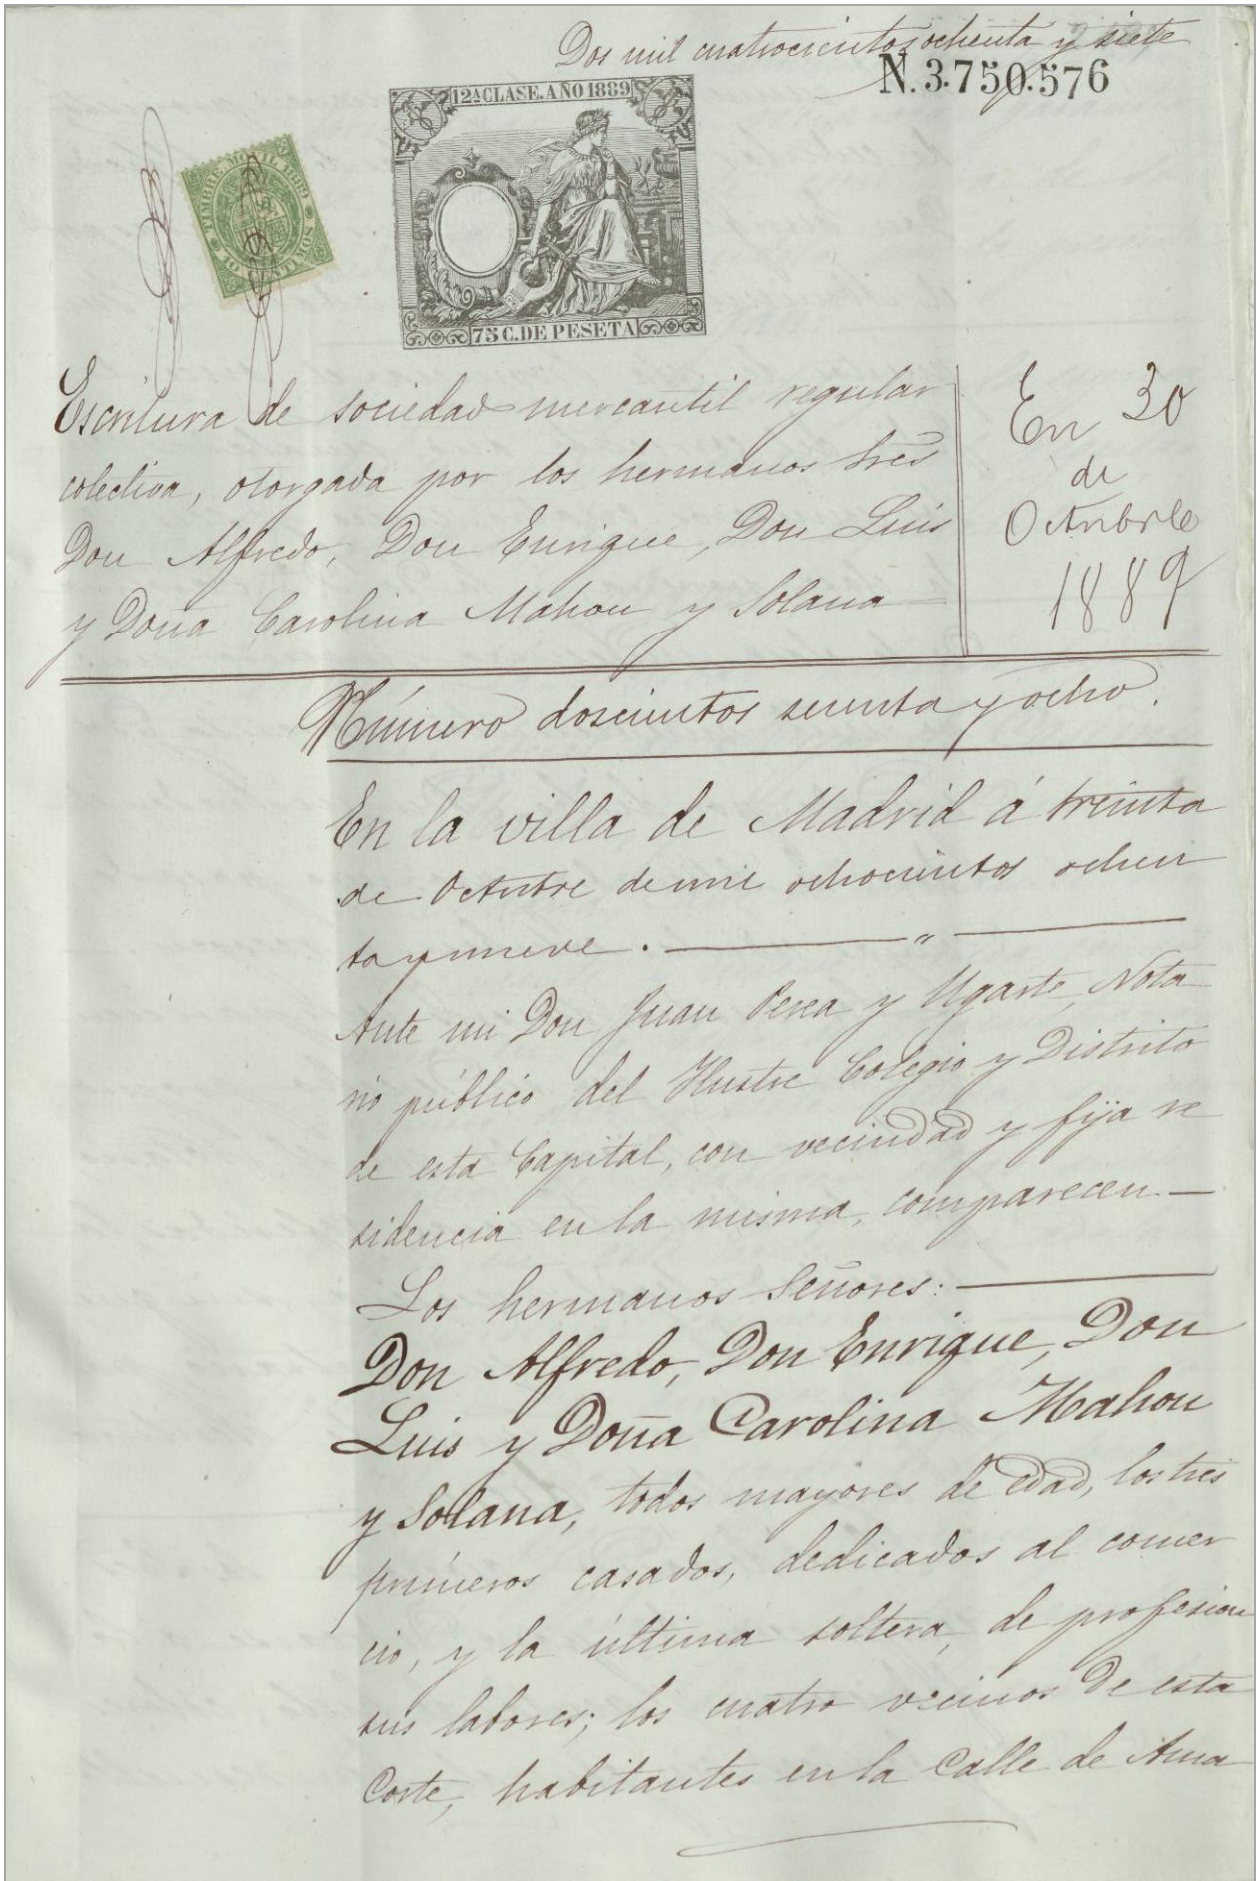 Dos mil cuatrocientos ochenta y siete
N. 3.750.576
12ª CLASE. AÑO 1889
TIMBRE MOVIL 1889
10 CENTIMOS
75 C. DE PESETA
Escritura de sociedad mercantil regular
colectiva, otorgada por los hermanos tres
Don Alfredo, Don Enrique, Don Luis
y Doña Carolina Mahou y Solana
En 30
de
Octubre
1889
Número doscientos sesenta y ocho.
En la villa de Madrid á treinta
de Octubre de mil ochocientos ochen
ta y nueve. — " —
Ante mi Don Juan Perea y Ugarte, Nota
rio público del Ilustre Colegio y Distrito
de esta Capital, con vecindad y fija re
sidencia en la misma, comparecen. —
Los hermanos Señores: —
Don Alfredo, Don Enrique, Don
Luis y Doña Carolina Mahou
y Solana, todos mayores de edad, los tres
primeros casados, dedicados al comer
cio, y la última soltera, de profesion
sus labores; los cuatro vecinos de esta
Corte, habitantes en la Calle de Ama